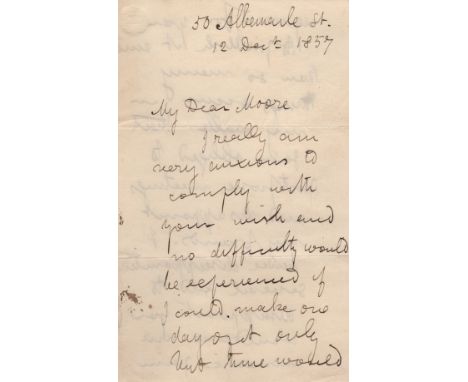 50 Albemarle St.
12 Decr. 1857
My Dear Moore
I really am
very anxious to
comply with
your wish and
no difficulty would
be experienced if
I could make one
day of it only
but there would